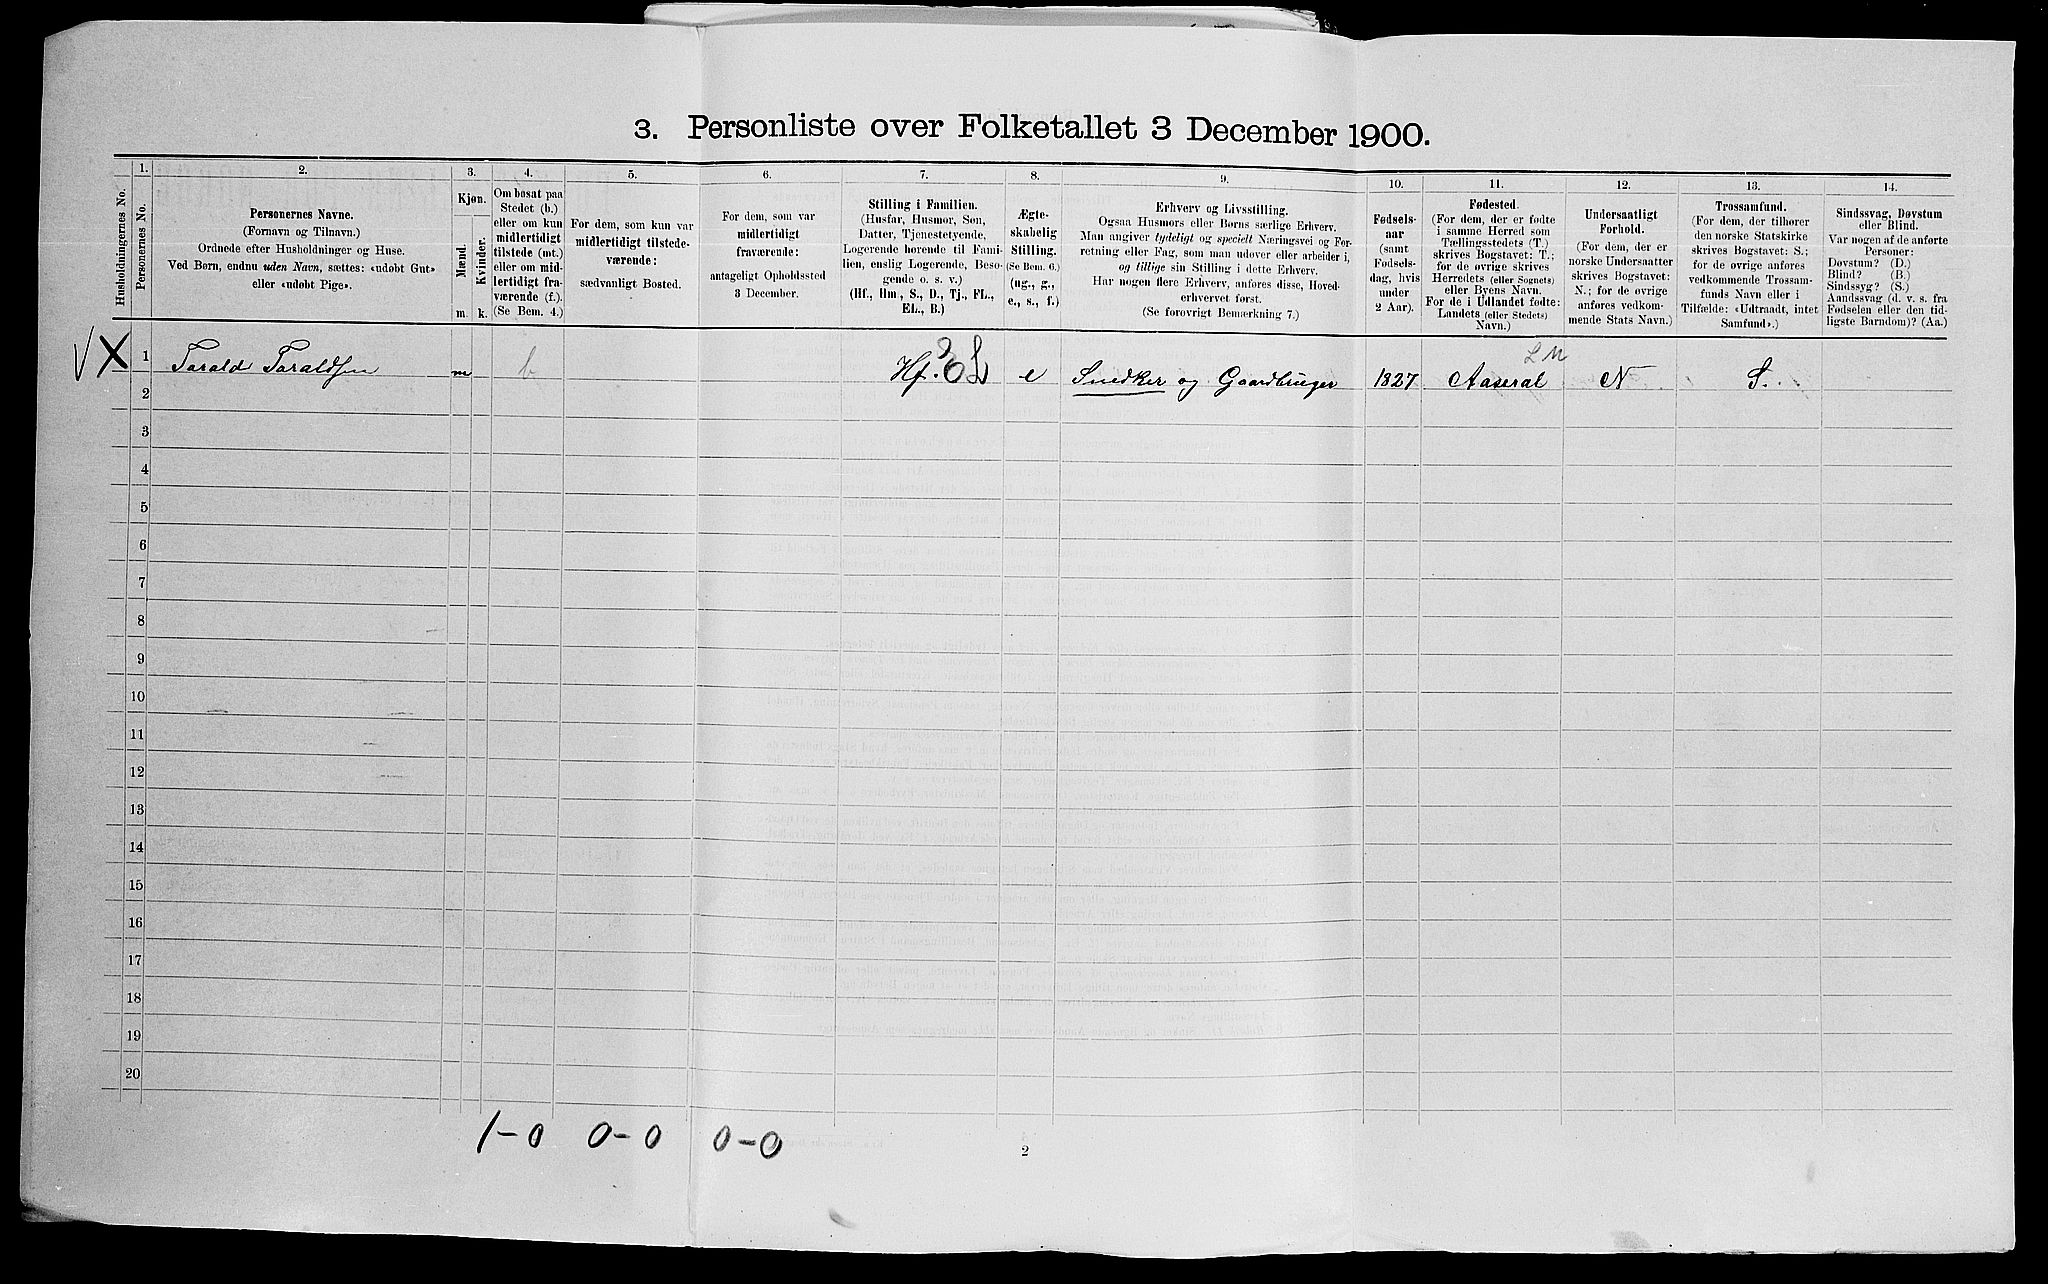 3. Personliste over Folketallet 3 December 1900.
Husholdningernes No.
1.
Personernes No.
2.
Personernes Navne.
(Fornavn og Tilnavn.)
Ordnede efter Husholdninger og Huse.
Ved Børn, endnu uden Navn, sættes: «udøbt Gut»
eller «udøbt Pige».
3.
Kjøn.
Mænd.
Kvinder.
m. k.
4.
Om bosat paa
Stedet (b.)
eller om kun
midlertidigt
tilstede (mt.)
eller om mid-
lertidigt fra-
værende (f.).
(Se Bem. 4.)
5.
For dem, som kun var
midlertidigt tilstede-
værende:
sædvanligt Bosted.
6.
For dem, som var
midlertidigt
fraværende:
antageligt Opholdssted
3 December.
7.
Stilling i Familien.
(Husfar, Husmor, Søn,
Datter, Tjenestetyende,
Logerende hørende til Fami-
lien, enslig Logerende, Besø-
gende o. s. v.)
(Hf., Hm., S., D., Tj., FL.,
EL., B.)
8.
Ægte-
skabelig
Stilling.
(Se Bem. 6.)
(ug., g.,
e., s., f.)
9.
Erhverv og Livsstilling.
Ogsaa Husmors eller Børns særlige Erhverv.
Man angiver tydeligt og specielt Næringsvei og For-
retning eller Fag, som man udøver eller arbeider i,
og tillige sin Stilling i dette Erhverv.
Har nogen flere Erhverv, anføres disse, Hoved-
erhvervet først.
(Se forøvrigt Bemærkning 7.)
10.
Fødsels-
aar
(samt
Fødsels-
dag, hvis
under
2 Aar).
11.
Fødested.
(For dem, der er fødte
i samme Herred som
Tællingsstedets (T.)
skrives Bogstavet: T.;
for de øvrige skrives
Herredets (eller Sognets)
eller Byens Navn.
For de i Udlandet fødte:
Landets (eller Stedets)
Navn.)
12.
Undersaatligt
Forhold.
(For dem, der er
norske Undersaatter
skrives Bogstavet:
N.; for de øvrige
anføres vedkom-
mende Stats Navn.)
13.
Trossamfund.
(For dem, der tilhører
den norske Statskirke
skrives Bogstavet: S.;
for de øvrige anføres
vedkommende Trossam-
funds Navn eller i
Tilfælde: «Udtraadt, intet
Samfund».)
14.
Sindssvag, Døvstum
eller Blind.
Var nogen af de anførte
Personer:
Døvstum? (D.)
Blind? (B.)
Sindssyg? (S.)
Aandssvag (d. v. s. fra
Fødselen eller den tid-
ligste Barndom)? (Aa.)
1 Tarald Taraldsen m b Hf. EL e Snedker og Gaardbruger 1827 Aaseral N S.
2
3
4
5
6
7
8
9
10
11
12
13
14
15
16
17
18
19
20
1-0 0-0 0-0
2